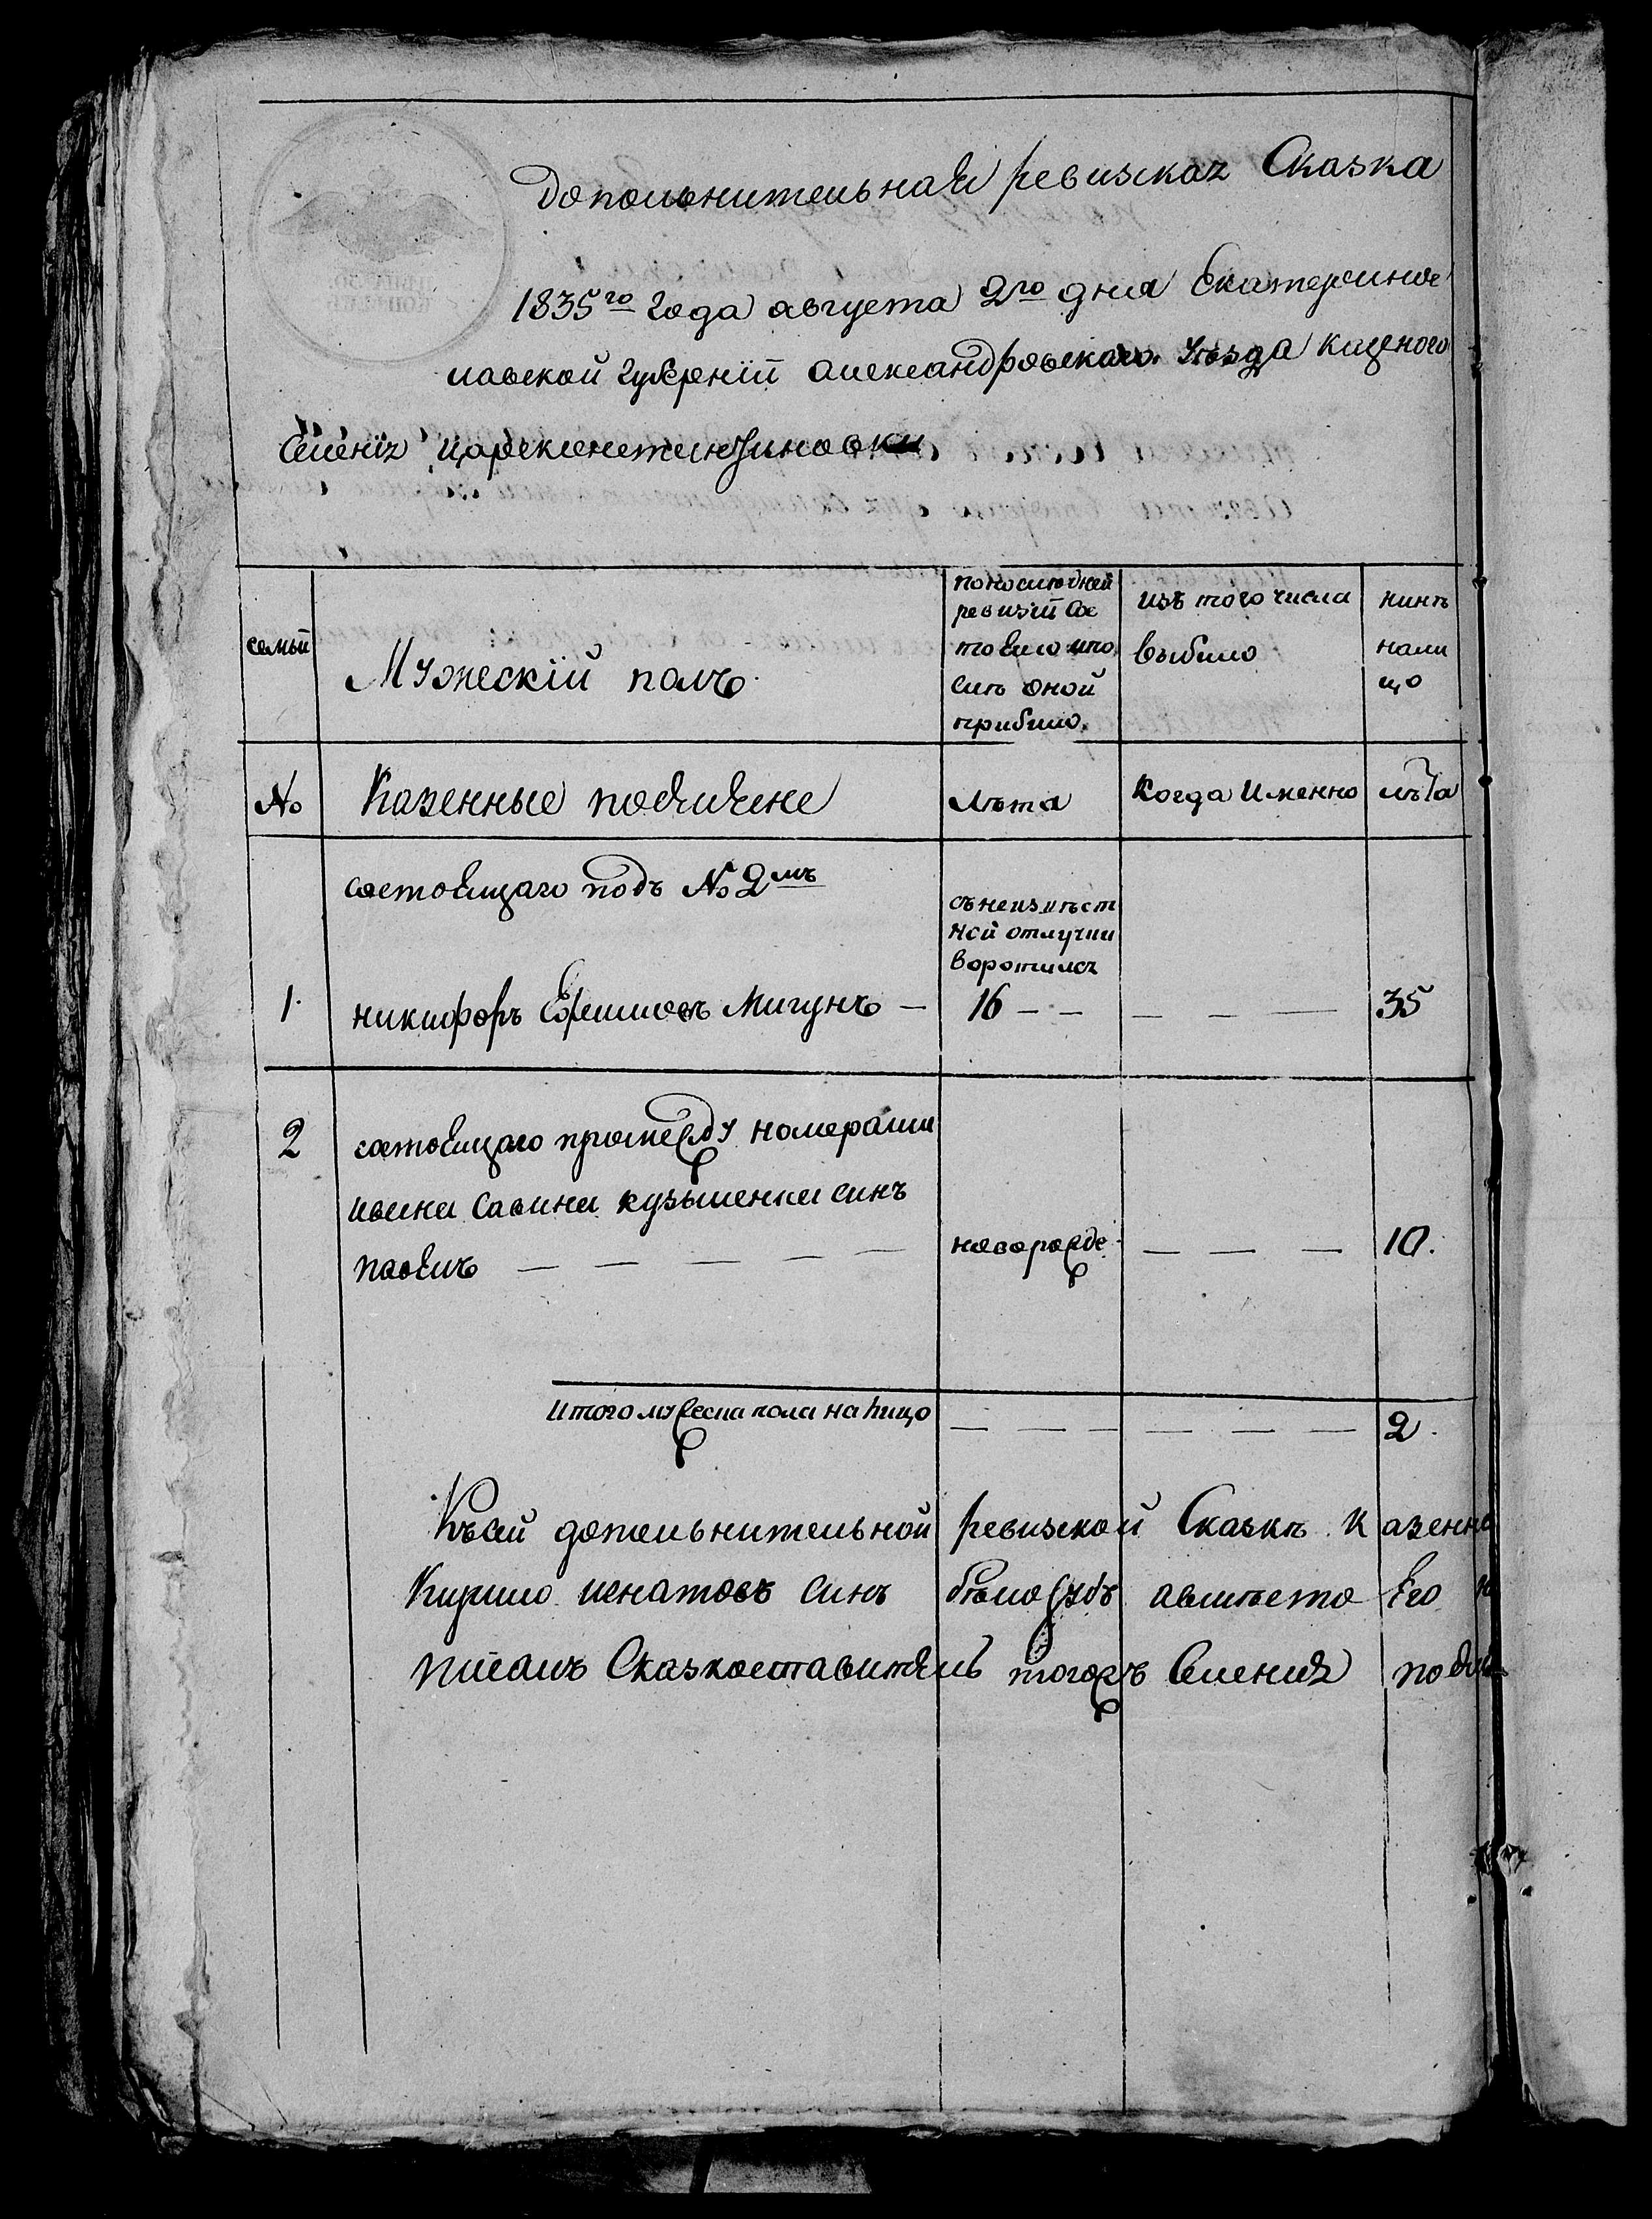 Дополнительная ревизская Сказка
1835го года августа 2го дня Екатеринос
лавской губернїи александровскаго Уѣзда казеного
Селенїя Царсконстантиновки
семьи
Мужескїй полъ
по последней
ревизїи сос
тояло ипо
слѣ оной
прибыло.
изъ того числа
выбыло
нинѣ
нали
цо
№
Казенные поселяне
Лѣта
Когда Именно
лѣта
состоящаго подъ № 2мъ
съ неизвѣст
ной отлучки
воротился
1. никифоръ Ефимовъ Мигунъ — 16 — — — — — 35
2 состоящаго промежду номерами
ивана Савина кузьменка синъ
павелъ — — — — — новорожде — — — 10.
итого мужеска пола на лицо — — — — — — 2.
Къ сей дополнительной ревизской Сказкѣ казенно
Кирило игнатовъ синъ бѣлозубъ авмѣсто Его
писалъ Сказкоставитель тогожъ Селения посел